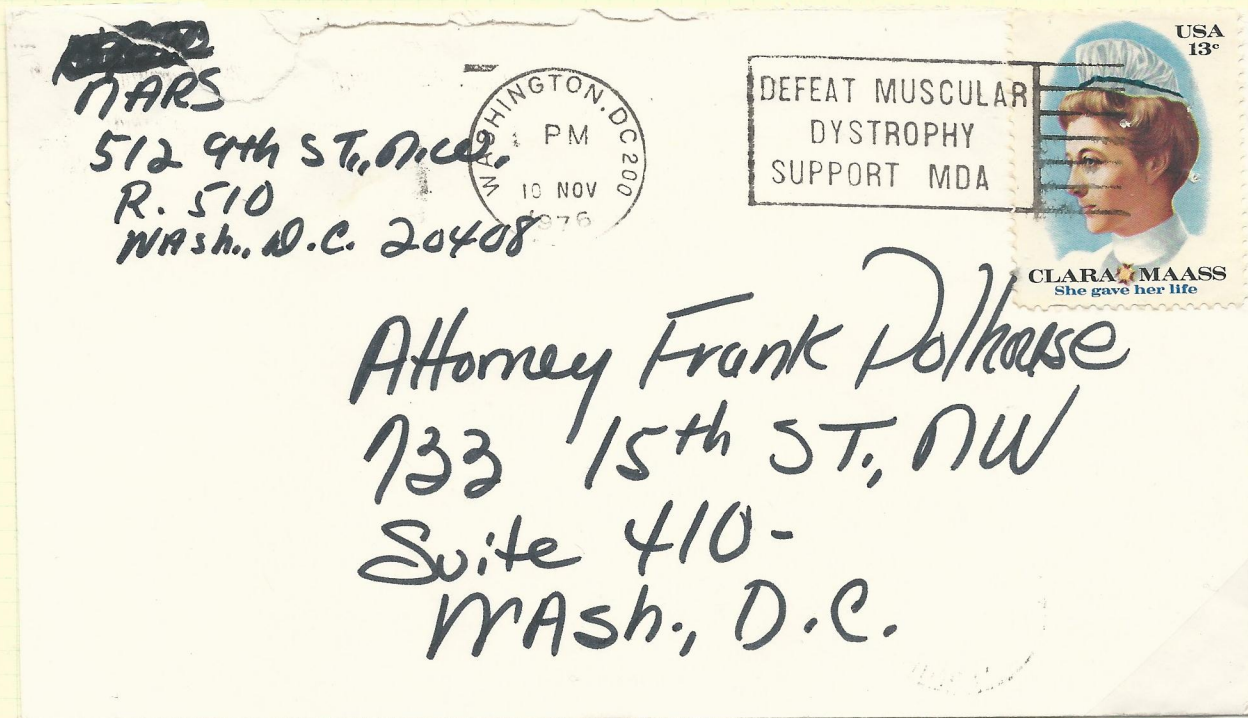 NARS
512 9th ST., N.W.
R. 510
WAsh., D.C. 20408
WASHINGTON, DC 200
PM
10 NOV
1976
DEFEAT MUSCULAR
DYSTROPHY
SUPPORT MDA
USA
13c
CLARA MAASS
She gave her life
Attorney Frank Dolhouse
733 15th ST., NW
Suite 410-
WAsh., D.C.